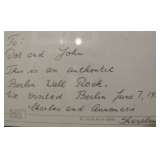 To:
Dot and John
This is an authentic
Berlin Wall Rock.
We visited Berlin June 7, 19
Charles and